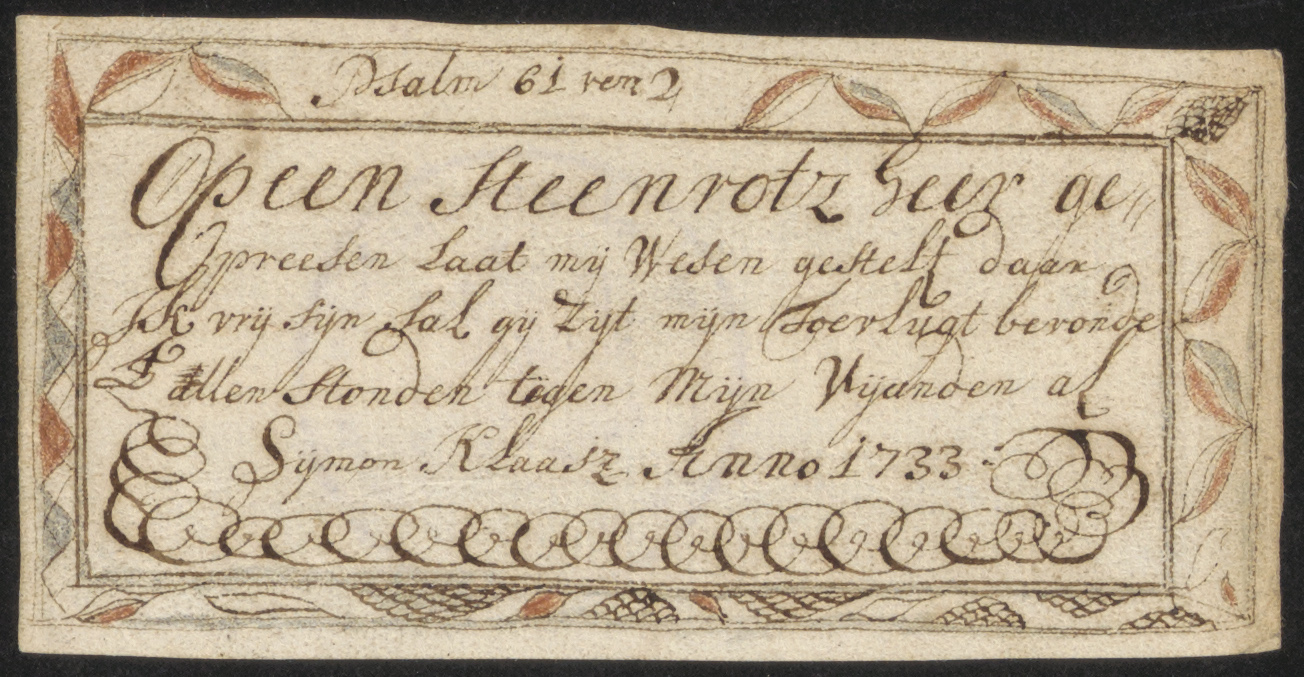 Psalm 61 vers 2
Op een Steenrotz heer ge„
Opreesen Laat mij Wesen gestelt daar
Ik vrij sijn sal gij Zijt mijn Toevlugt bevonde
T allen Stonden tegen Mijn Vijanden al
Sijmon Klaasz Anno 1733